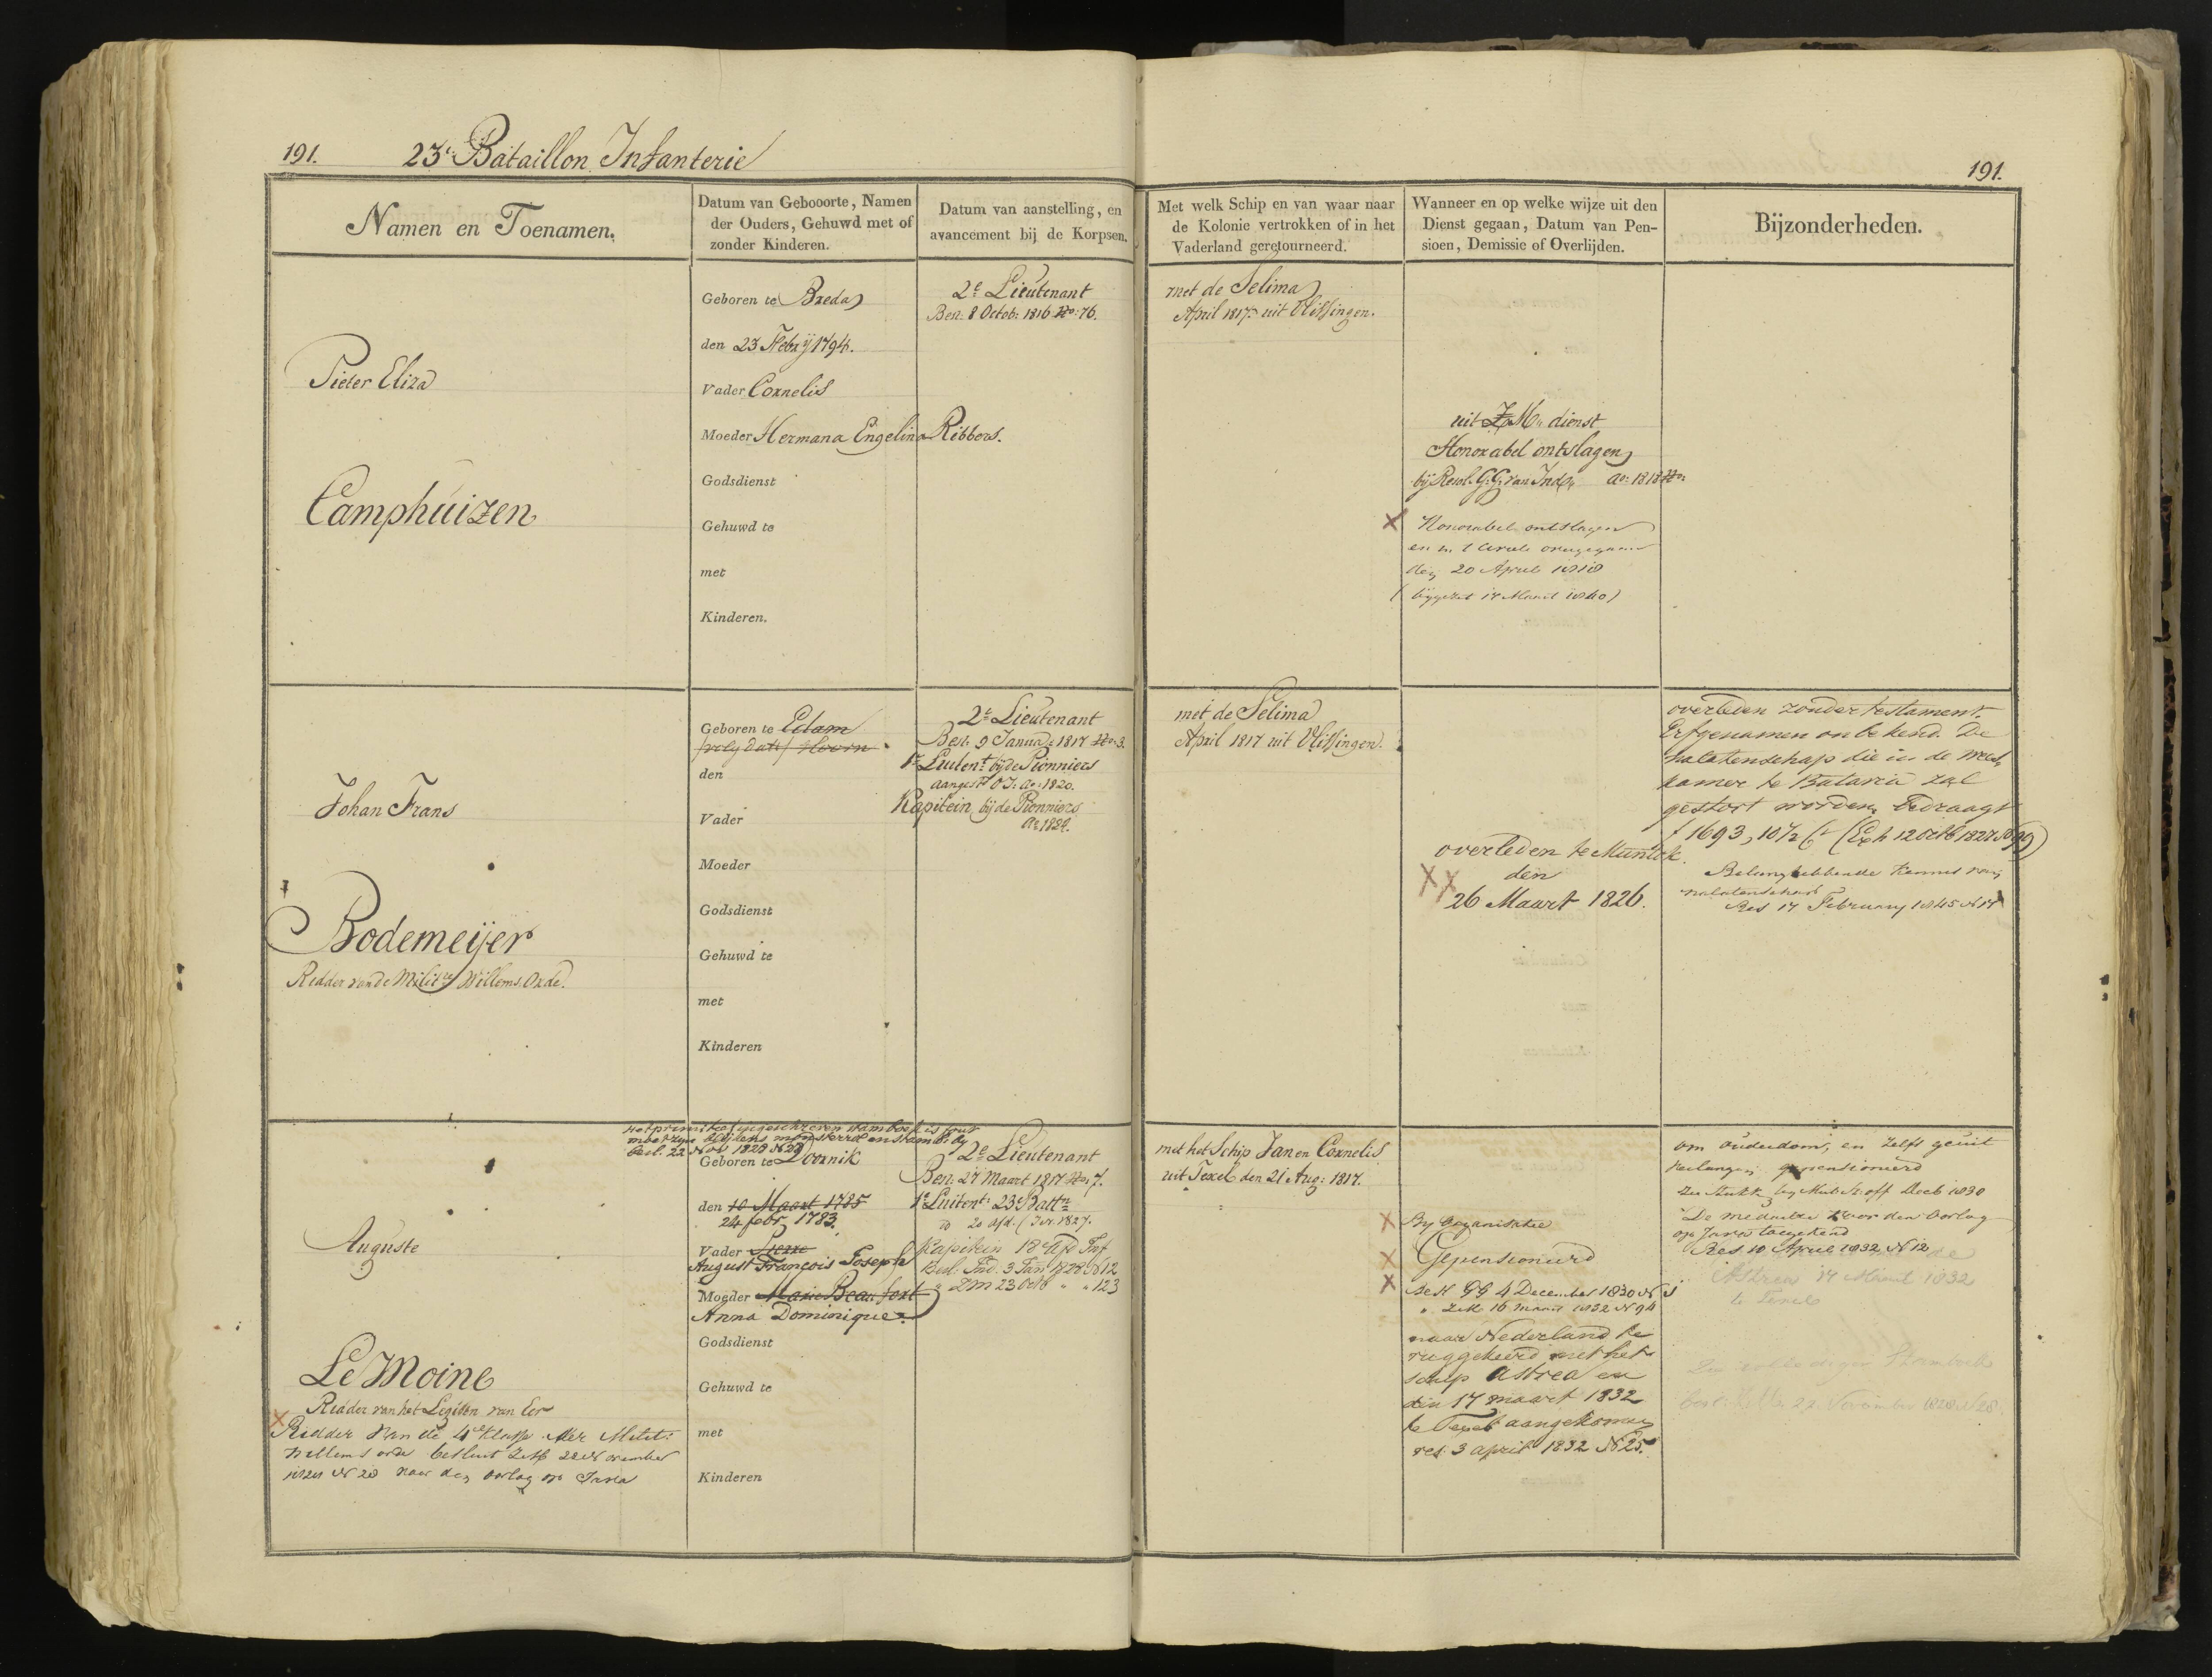 191. 23e Bataillon Infanterie
191.
Namen en Toenamen.
Datum van Gebooorte, Namen
der Ouders, Gehuwd met of
zonder Kinderen.
Datum van aanstelling, en
avancement bij de Korpsen.
Met welk Schip en van waar naar
de Kolonie vertrokken of in het
Vaderland geretourneerd.
Wanneer en op welke wijze uit den
Dienst gegaan, Datum van Pen-
sioen, Demissie of Overlijden.
Bijzonderheden.
Pieter Eliza
Camphuizen
Geboren te Breda
den 23 Febrij 1794.
Vader Cornelis
Moeder Hermana Engelina Ribbers.
Godsdienst
Gehuwd te
met
Kinderen.
2e Lieutenant
Besl: 8 Octob: 1816 No: 76.
met de Selima
April 1817 uit Vlissingen.
uit Z.M. dienst
Honorabel ontslagen
bij Resol. G.G. van Inde ao: 1818 No:
Honorabel ontslagen
den 20 April 1818
Johan Frans
Bodemeijer
Ridder van de Milit: Willems. Orde.
Geboren te Edam
Hoorn
den
Vader
Moeder
Godsdienst
Gehuwd te
met
Kinderen
2e Lieutenant
Besl: 9 Janua: 1817 No: 3.
1e Lieutent bij de Pionniers
aangest O.I. ao: 1820.
Kapitein bij de Pionniers
met de Selima
April 1817 uit Vlissingen.
overleden te Muntok.
den
26 Maart 1826.
overleden zonder testament.
Erfgenamen onbekend. De
nalatenschap die in de wees
kamer te Batavia zal
gestort worden, bedraagt
f 1693, 10½
Belanghebbende
nalatenschap
Res 17 February 1845 N 17
Auguste
Le Moine
Ridder van het Legioen van Eer
Ridder van de 4e Klasse der Milit:
Willems orde besluit ZM 22 November
1828 N 28 voor den oorlog op Java
besl. 22 Nov 1828 N 28
Geboren te Doornik
den 10 Maart 1785
24 febr. 1783.
Vader Pierre
August François Joseph
Moeder Marie Beaufort
Anna Dominique.
Godsdienst
Gehuwd te
met
Kinderen
2e Lieutenant
Besl: 27 Maart 1817 No: 7.
1e Luitent: 23e Battn
Kapitein 18e Afd Inf
Besl. Ind. 3 Jan 1828 N 12
" ZM 23 Octb " " 123
met het Schip Jan en Cornelis
uit Texel den 21 Aug: 1817.
By Organisatie
Gepensioneerd
Besl GG 4 December 1830 N
" ZM 16 maart 1832 N 94
naar Nederland te
ruggekeerd met het
schip Astrea en
den 17 maart 1832
te Texel aangekomen
res. 3 april 1832 N 25.
om ouderdom, en zelfs geuit
verlangen gepensioneerd
De medaille voor den oorlog
op Java toegekend
Res. 10 April 1832 N 12
Astrea 17 Maart 1832
te Texel